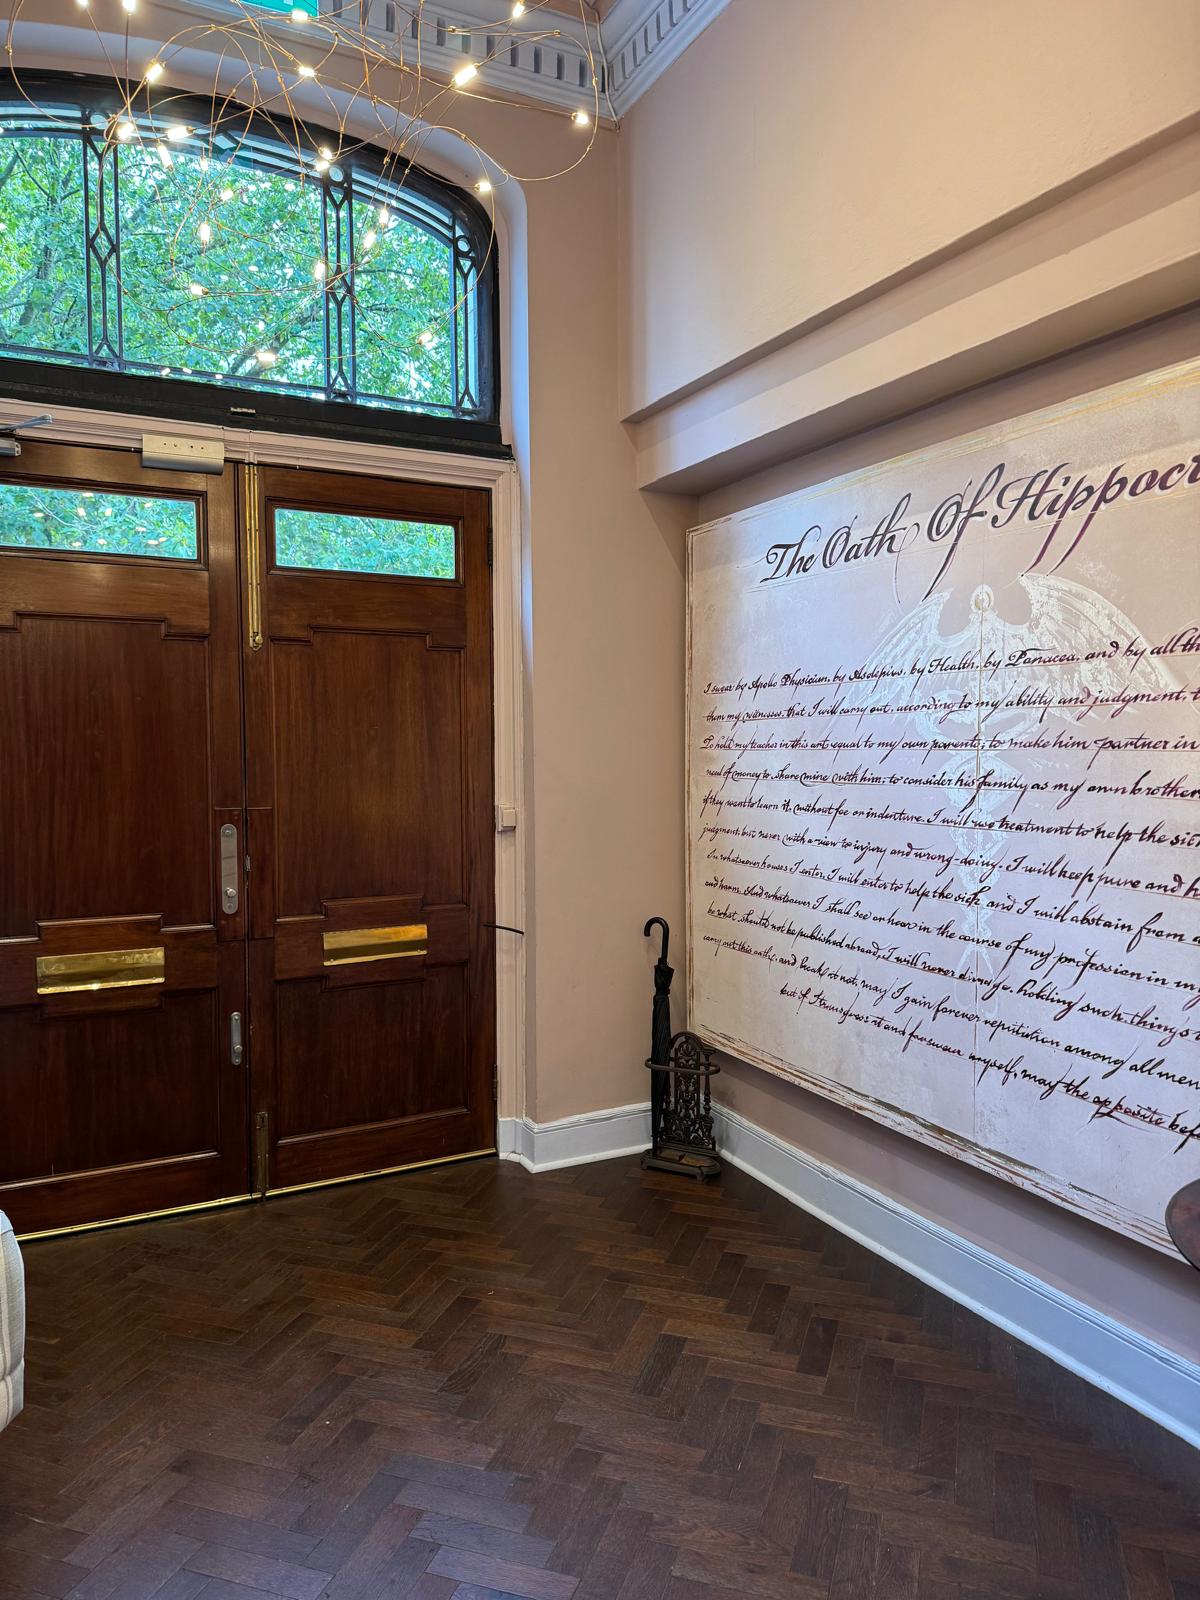 The Oath Of Hippocr
I swear by Apollo Physician, by Asclepius, by Health, by Panacea, and by all th
them my witnesses, that I will carry out, according to my ability and judgment, t
To hold my teacher in this art equal to my own parents; to make him partner in
need of money to share mine with him; to consider his family as my own brother
if they want to learn it, without fee or indenture. I will use treatment to help the sic
judgment, but never with a view to injury and wrong-doing. I will keep pure and h
In whatsoever houses I enter, I will enter to help the sick and I will abstain from a
and harm. And whatsoever I shall see or hear in the course of my profession in my
be what should not be published abroad, I will never divulge, holding such things
carry out this oath, and break it not, may I gain forever reputation among all men
but if I transgress it and forswear myself, may the opposite befa